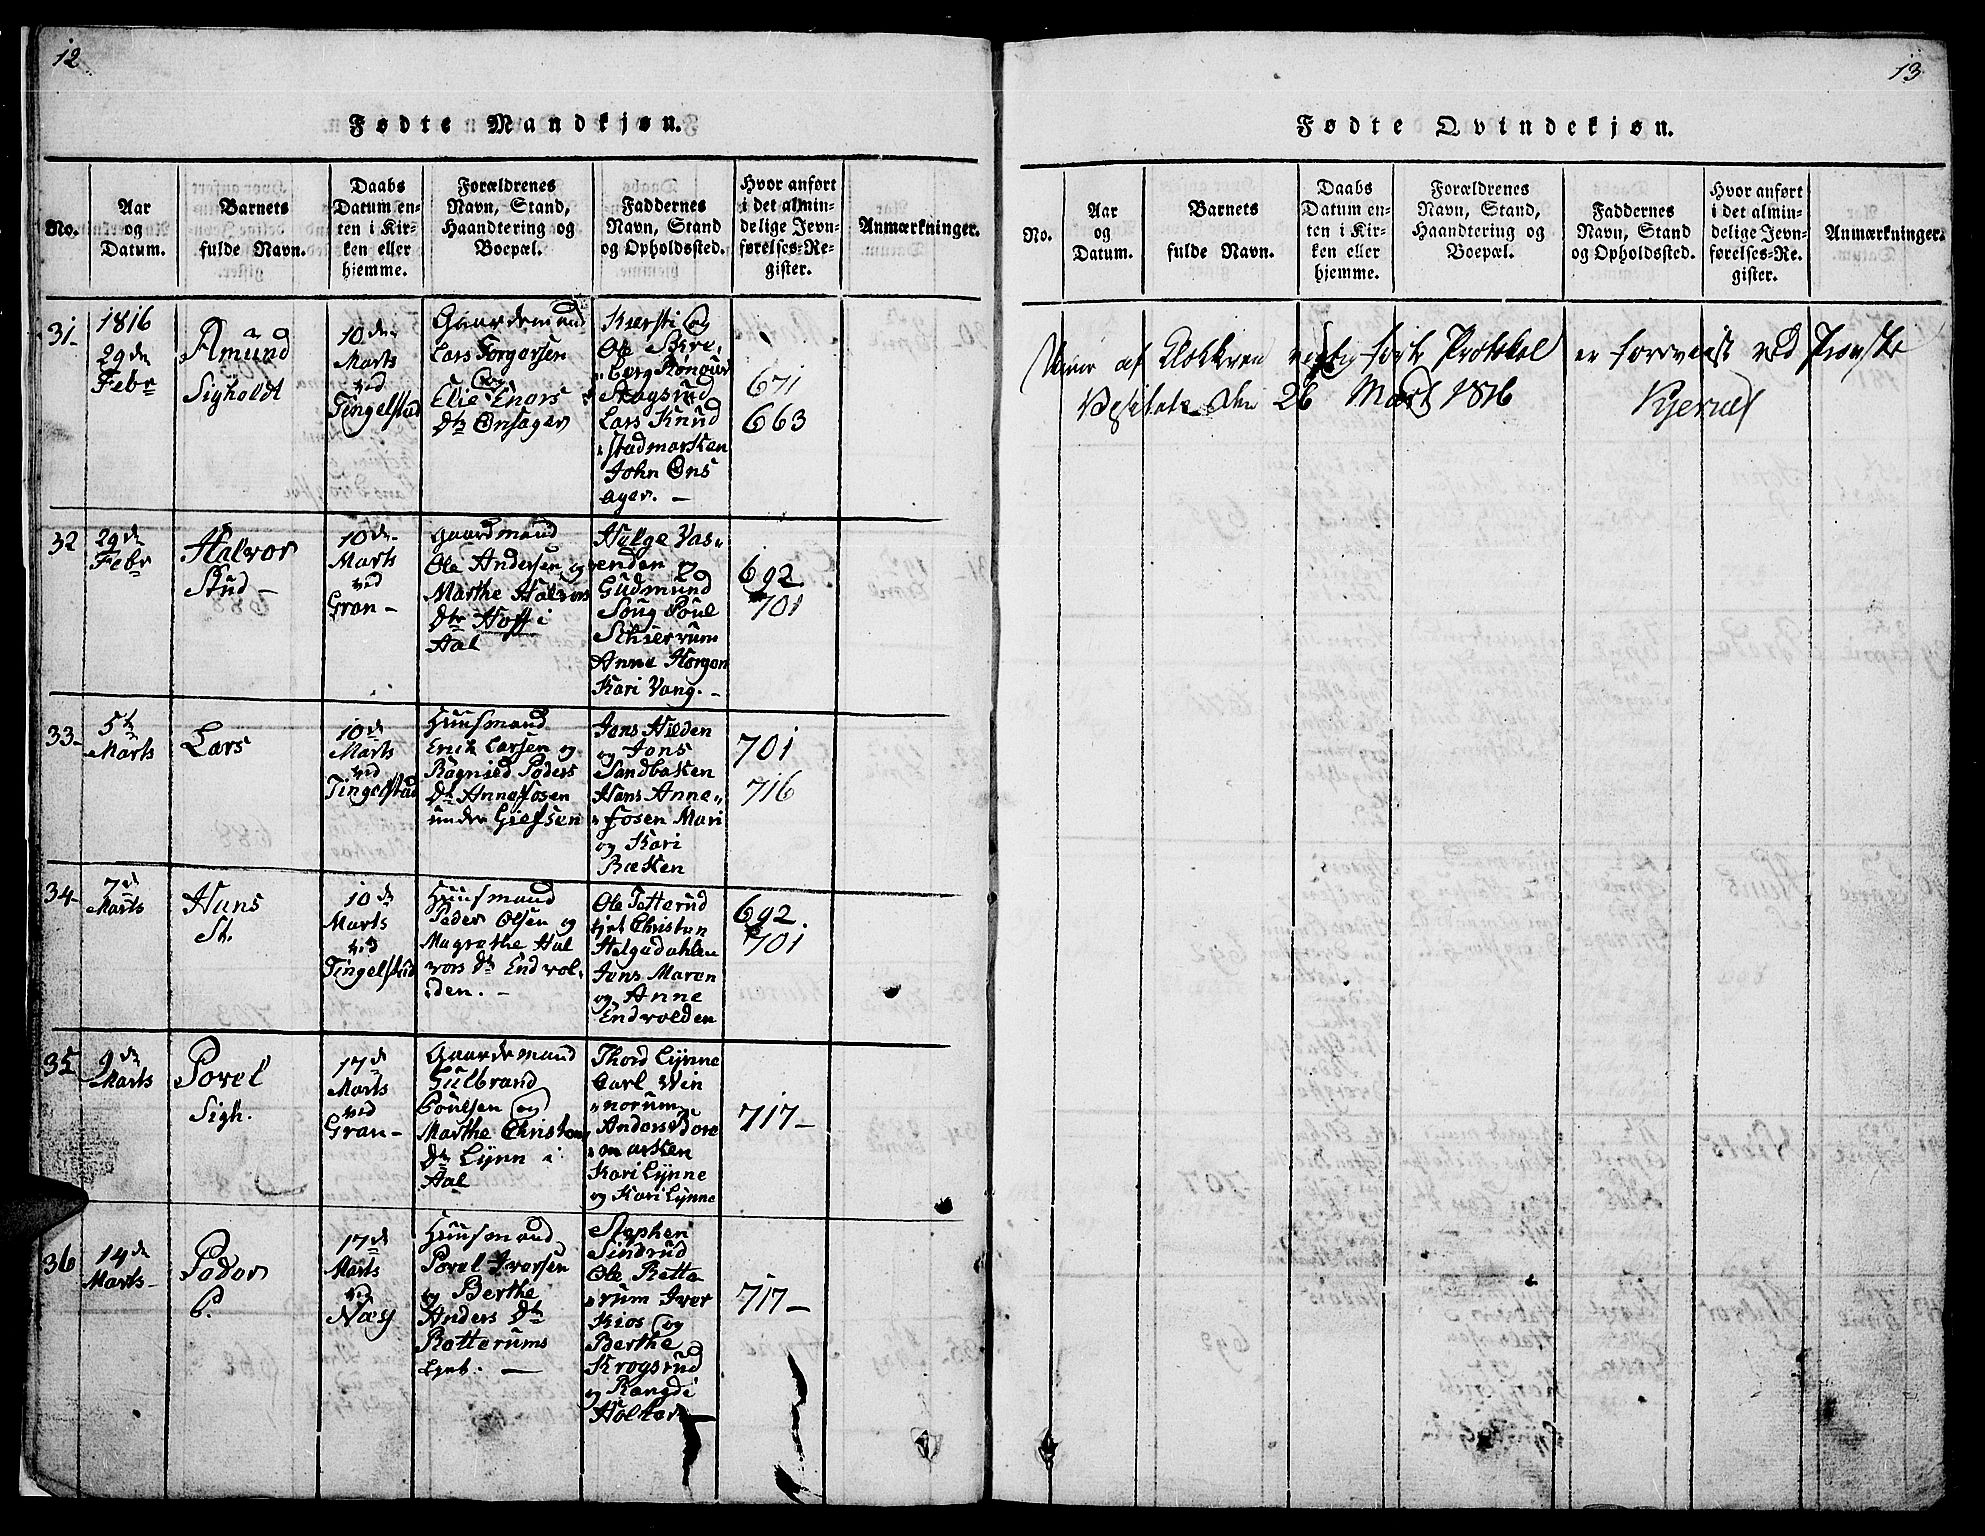 12
Fødte Mandkjøn.
No.
Aar
og
Datum.
Barnets
fulde Navn.
Daabs
Datum en-
ten i Kir-
ken eller
hjemme.
Forældrenes
Navn, Stand,
Haandtering og
Boepæl.
Faddernes
Navn, Stand
og Opholdssted.
Hvor anført
i det almin-
delige Jevn-
førelses-Re-
gister.
Anmærkninger.
31-
1816
29de
Febr
Amund
Sigholdt
10de
Marts
ved
Tingelstad
Gaardemand
Lars Torgersen
og
Elie Enors
Dtr Onsager
Kiersti og
Ole Bre-
Skogsrud
Lars Knud
stadmarken
John Ons
ager. -
671
663
32
29de
Febr
Halvor
Stud -
10de
Marts
ved
Gran -
Gaardmand
Ole Andersen og
Marthe Halvors
Dtr Hoff i
Aal
Helge Vas-
enden
Gudmund
Poul
Schierrum
Anne Horgen
Kari Vang. -
692
701
33-
5te
Marts
Lars
10de
Marts
ved
Tingelstad
Huusmand
Erik Larsen og
Ragnild Peders
Dtr Annefosen
under Giefsen
Jens Hilden
og Jens
Sandbaken
Hans Anne-
fosen Mari
og Kari
Bæken
701
716
34-
7de
Marts
Hans
St.
10de
Marts
ved
Tingelstad
Huusmand
Peder Olsen og
Magrethe Hal
vors Dtr Endvol-
den. -
Ole Tetterud
Christen
Helgedahlen
Jens Maren
og Anne
Endvolden
692
701
35
9de
Marts
Povel
Sigh.
17de
Marts
ved
Gran -
Gaardemand
Gulbrand
Poulsen og
Marthe Christens
Dtr Lynn i
Aal
Thord Lynne
Carl Win
norum
Anders Dore
marken
Kari Lynne
og Kari Lynne
717 -
36
14de
Marts -
Peder
P.
17de
Marts
ved
Næs
Huusmand
Povel Iversen
og Berthe
Anders Dtr
Rotterums
Ejeb. -
Stephen
Sindrud
Ole Retta
rum Iver
Kios og
Berthe
Krogsrud
og Rangdi
Holter -
717 -
13
Fødte Qvindekjøn.
No.
Aar
og
Datum.
Barnets
fulde Navn.
Daabs
Datum en-
ten i Kir-
ken eller
hjemme.
Forældrenes
Navn, Stand,
Haandtering og
Boepæl.
Faddernes
Navn, Stand
og Opholdssted.
Hvor anført
i det almin-
delige Jevn-
førelses-Re-
gister.
Anmærkninger.
af Klokkeren rigtig førte Protokol er foreviist ved Provste
Visitats den 26 Marts 1816